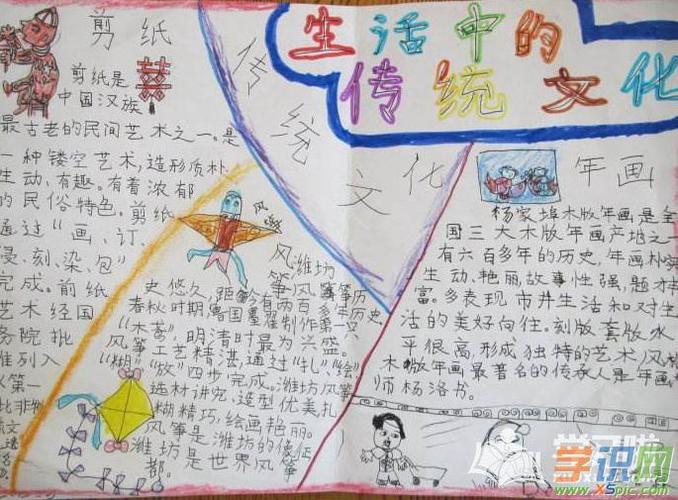 生活中的
传统文化
剪纸
剪纸是
中国汉族
最古老的民间艺术之一。是
一种镂空艺术,造形质朴
生动、有趣。有着浓郁
的民俗特色。剪纸
通过“画、订、
浸、刻、染、包”
完成。前纸
艺术经国
务院批
准列入
第一
传统文化
风筝
潍坊
风筝
史悠久,距今
春秋时期,鲁国
“木鸢”,明清时最为兴盛。
风筝工艺精湛,通过“扎”“绘
“糊”“放”四步完成。潍坊风筝
选材讲究,造型优美扎
糊精巧,绘画艳丽。
风筝是潍坊的像征
潍坊是世界风筝
都。
年画
杨家埠木版年画是全
国三大木版年画产地之一
有六百多年的历史,年画朴实
生动、艳丽,故事性强,题材丰
富。多表现市井生活和对生
活的美好向往。刻版套版水
平很高,形成独特的艺术风格
木版年画最著名的传承人是年画
师杨洛书。
学识网
www.XSpic.com